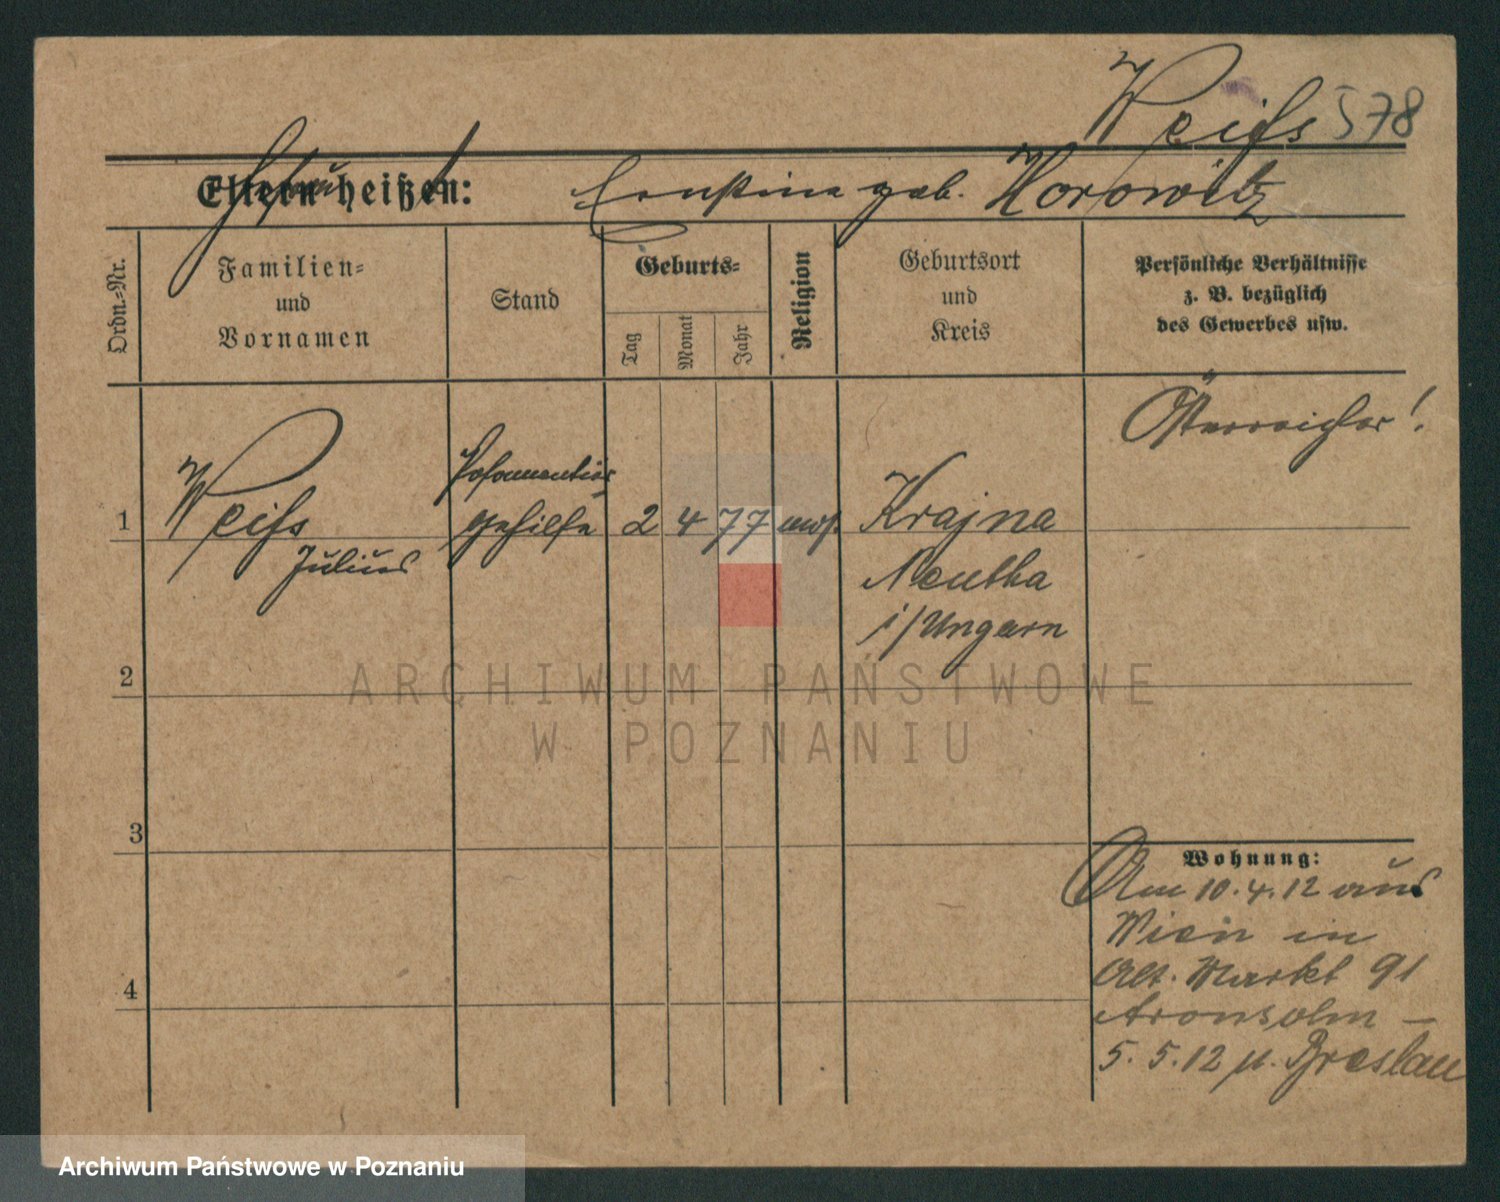 Weiss 578
Eltern heißen:
Ernstine geb. Horowitz
Ordn.-Nr.
Familien-
und
Vornamen
Stand
Geburts-
Tag
Monat
Jahr
Religion
Geburtsort
und
Kreis
Persönliche Verhältnisse
z. B. bezüglich
des Gewerbes usw.
Österreicher!
1
Weiss
Julius
Posamentier
gehilfe
2 4 77 mos.
Krajna
Neutha
i/Ungarn
2
3
4
Wohnung:
Am 10.4.12 aus
Wien in
Alt. Markt 91
Aronsohn –
5.5.12 n. Breslau
ARCHIWUM PAŃSTWOWE
W POZNANIU
Archiwum Państwowe w Poznaniu